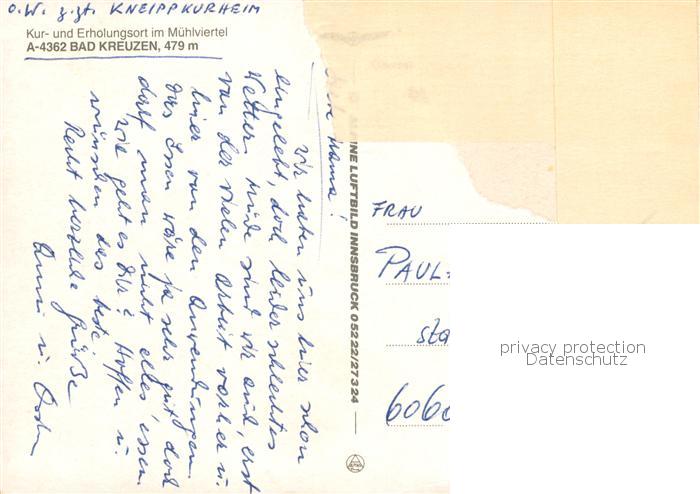 O.W. z.zt. KNEIPPKURHEIM
Kur- und Erholungsort im Mühlviertel
A-4362 BAD KREUZEN, 479 m
Mama!
Wir haben uns hier schon
eingelebt, doch leider schlechtes
Wetter. Müde sind wir auch, erst
von der vielen Arbeit vorher u.
hier von den Anwendungen.
Das Essen wäre ja sehr gut, doch
darf man nicht alles essen.
Wie geht es Dir? Hoffen u.
wünschen das beste
Recht herzliche Grüße
Anni u.
INE LUFTBILD INNSBRUCK 05222/27324
FRAU
PAUL
6060
privacy protection
Datenschutz